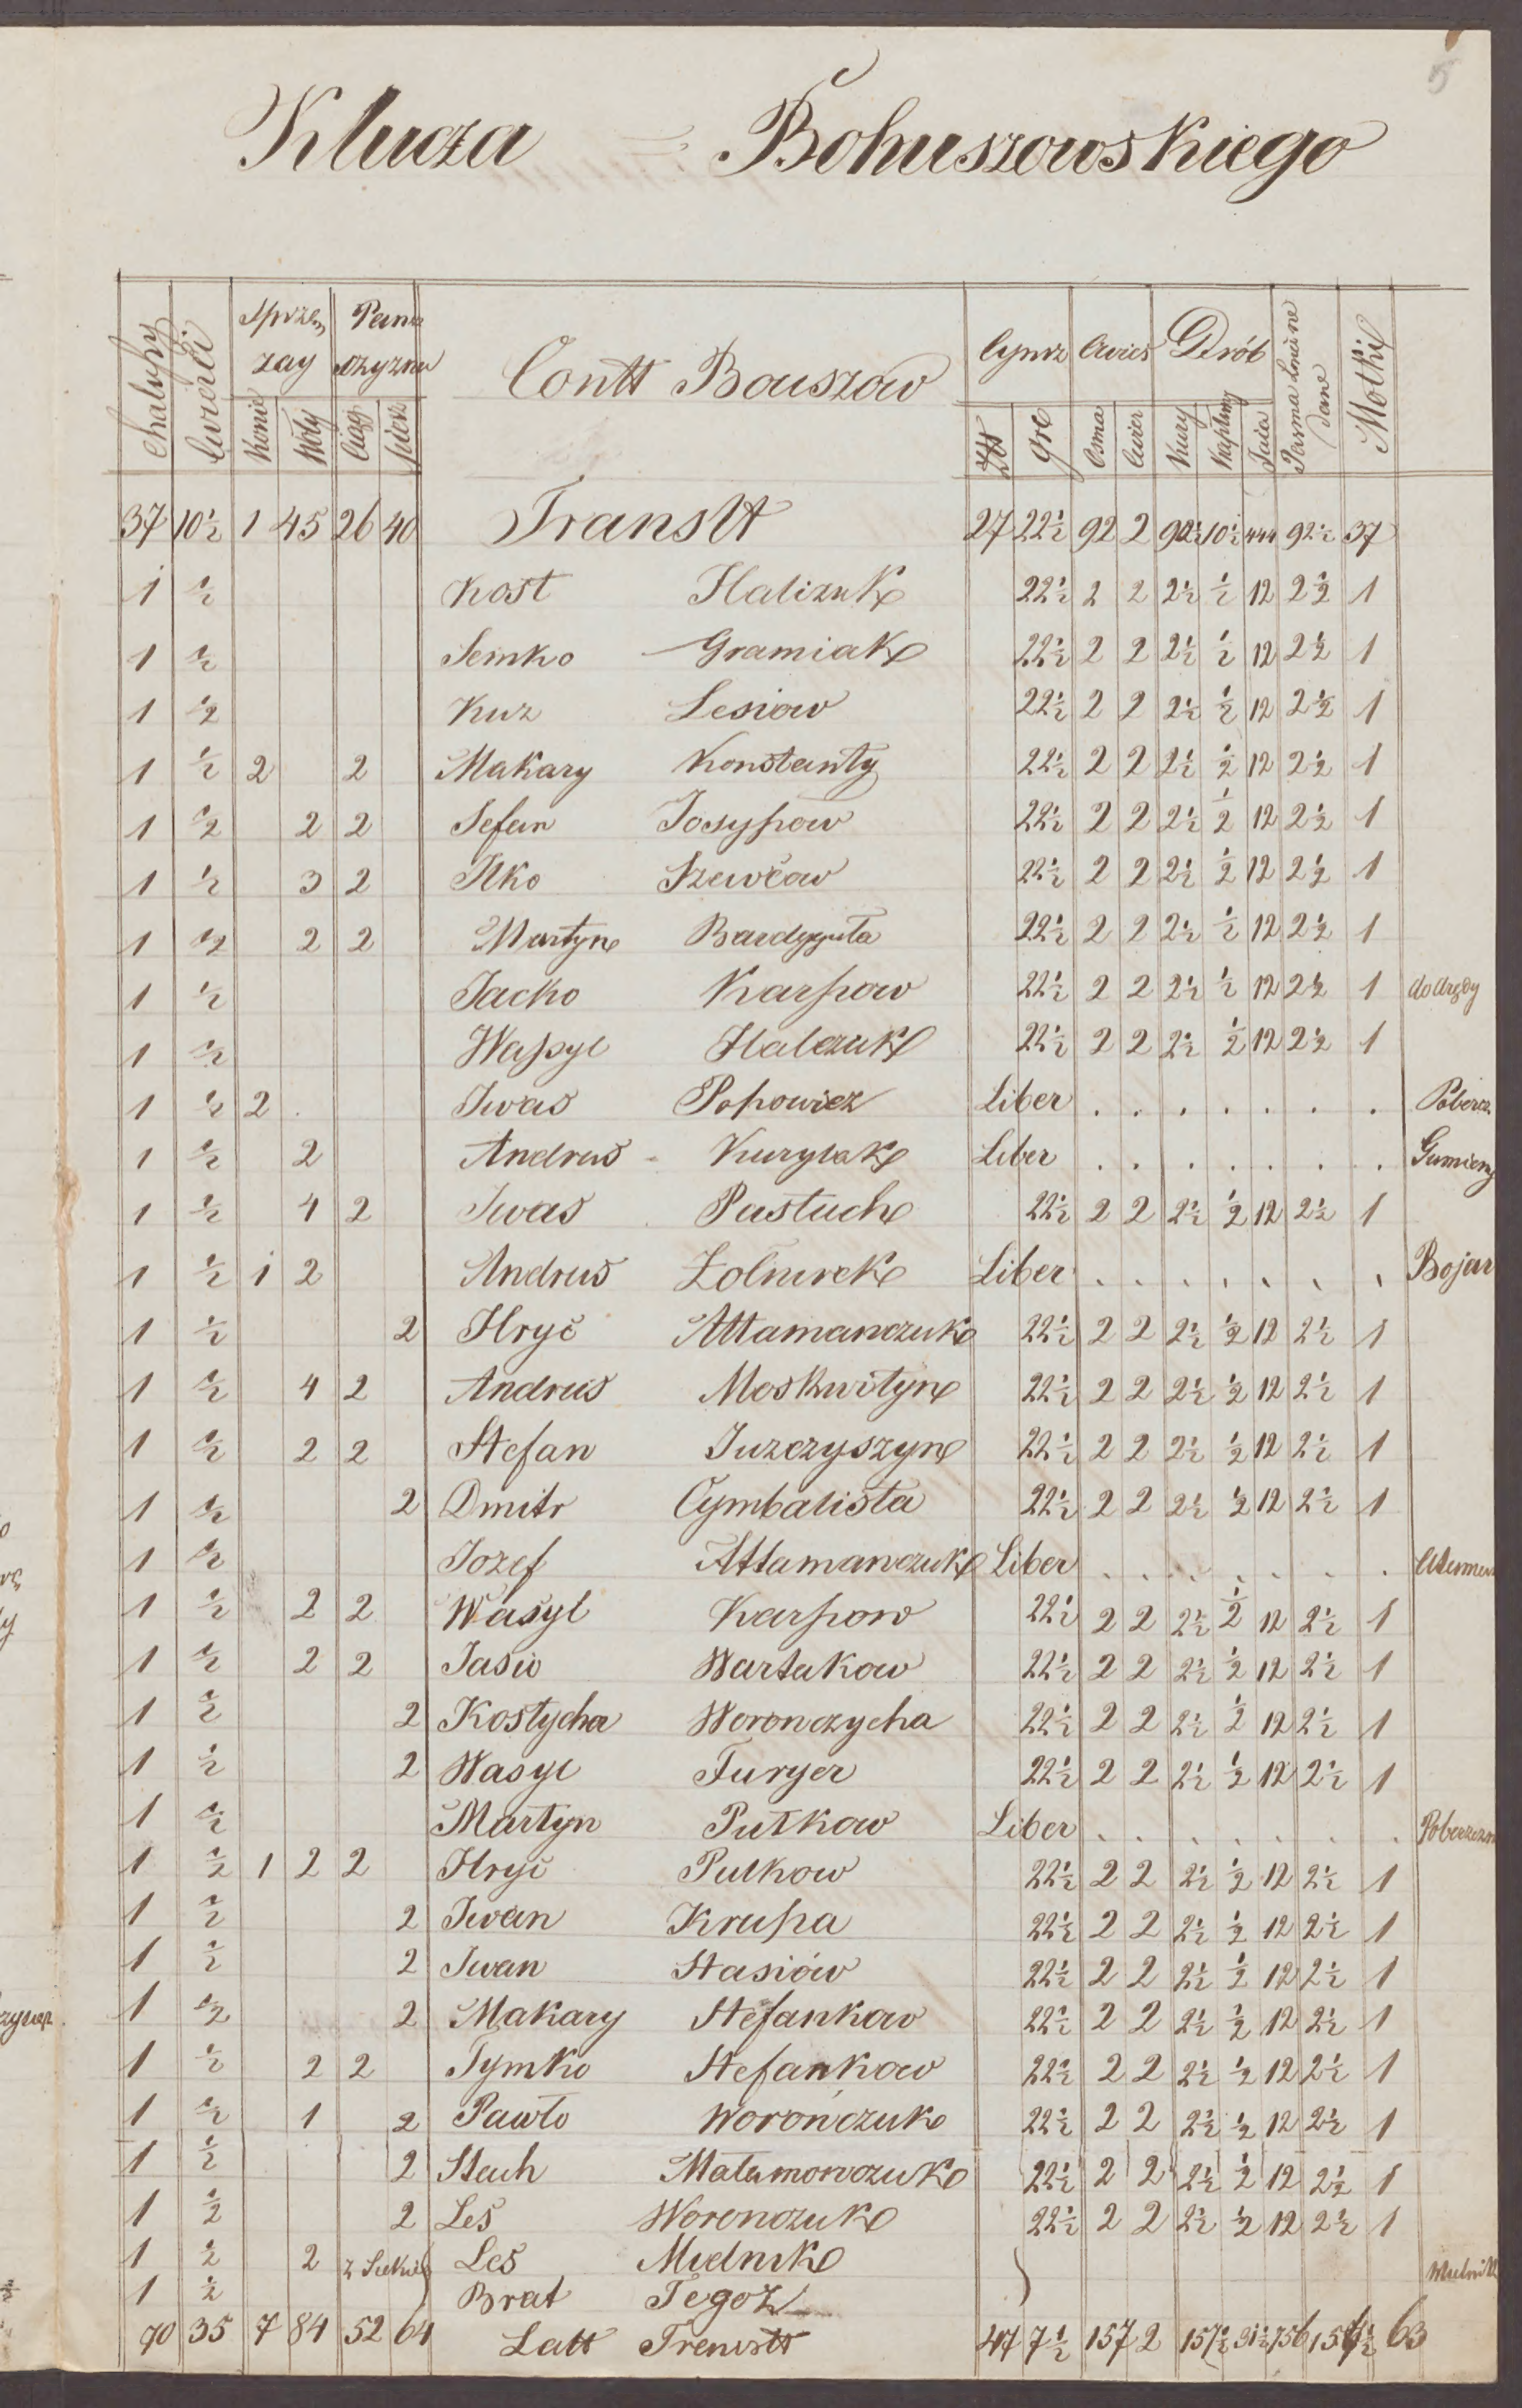 5
Klucza = Bohuszowskiego
Chałupy Cwierci Sprzężay Pańszczyzna Contt Bouszow Czynsz Owies Drób Pasma dane Motki
Konie Woły Ciąg piesz Złtt gre Osma Cwier Kury Kapłuny Jaia
37 10½ 1 45 26 40 Transtt 27 22½ 92 2 92½ 10½ 444 92½ 37
1 ½ Kost Halizuk 22½ 2 2 2½ ½ 12 2½ 1
1 ½ Semko Gramiak 22½ 2 2 2½ ½ 12 2½ 1
1 ½ Kuz Lesiow 22½ 2 2 2½ ½ 12 2½ 1
1 ½ 2 2 Makary Konstanty 22½ 2 2 2½ ½ 12 2½ 1
1 ½ 2 2 Sefan Josypow 22½ 2 2 2½ ½ 12 2½ 1
1 ½ 3 2 Ilko Szewcow 22½ 2 2 2½ ½ 12 2½ 1
1 ½ 2 2 Martyn Bardyguła 22½ 2 2 2½ ½ 12 2½ 1
1 ½ Jacko Karpow 22½ 2 2 2½ ½ 12 2½ 1
1 ½ Wasyl Halczuk 22½ 2 2 2½ ½ 12 2½ 1
1 ½ 2 Iwas Popowicz Liber . . . . . . . . Poberez
1 ½ 2 Andrus Kurylak Liber . . . . . . . Gumieny
1 ½ 4 2 Iwas Pastuch 22½ 2 2 2½ ½ 12 2½ 1
1 ½ 1 2 Andrus Zolnirek Liber . . . . . . . Bojar
1 ½ 2 Hryć Attamanczuk 22½ 2 2 2½ ½ 12 2½ 1
1 ½ 4 2 Andrus Moskwityn 22½ 2 2 2½ ½ 12 2½ 1
1 ½ 2 2 Stefan Juzczyszyn 22½ 2 2 2½ ½ 12 2½ 1
1 ½ 2 Dmitr Cymbalista 22½ 2 2 2½ ½ 12 2½ 1
1 ½ Jozef Attamanczuk Liber . . . . . . .
1 ½ 2 2 Wasyl Karpow 22½ 2 2 2½ ½ 12 2½ 1
1 ½ 2 2 Jasio Wartakow 22½ 2 2 2½ ½ 12 2½ 1
1 ½ 2 Kostycha Woronczycha 22½ 2 2 2½ ½ 12 2½ 1
1 ½ 2 Wasyl Furyer 22½ 2 2 2½ ½ 12 2½ 1
1 ½ Martyn Putkow Liber . . . . . . .
1 ½ 1 2 2 Hryć Putkow 22½ 2 2 2½ ½ 12 2½ 1
1 ½ 2 Iwan Krupa 22½ 2 2 2½ ½ 12 2½ 1
1 ½ 2 Iwan Stasiów 22½ 2 2 2½ ½ 12 2½ 1
1 ½ 2 Makary Stefankow 22½ 2 2 2½ ½ 12 2½ 1
1 ½ 2 2 Tymko Stefankow 22½ 2 2 2½ ½ 12 2½ 1
1 ½ 1 2 Pawło Woronczuk 22½ 2 2 2½ ½ 12 2½ 1
1 ½ 2 Stach Matamonczuk 22½ 2 2 2½ ½ 12 2½ 1
1 ½ 2 Leś Woronczuk 22½ 2 2 2½ ½ 12 2½ 1
1 ½ 2 Leś Mielnik Mielnik
1 ½ Brat Tegoż
70 35 7 84 52 64 Latt 47 7½ 157 2 157½ 31½ 756 157½ 63